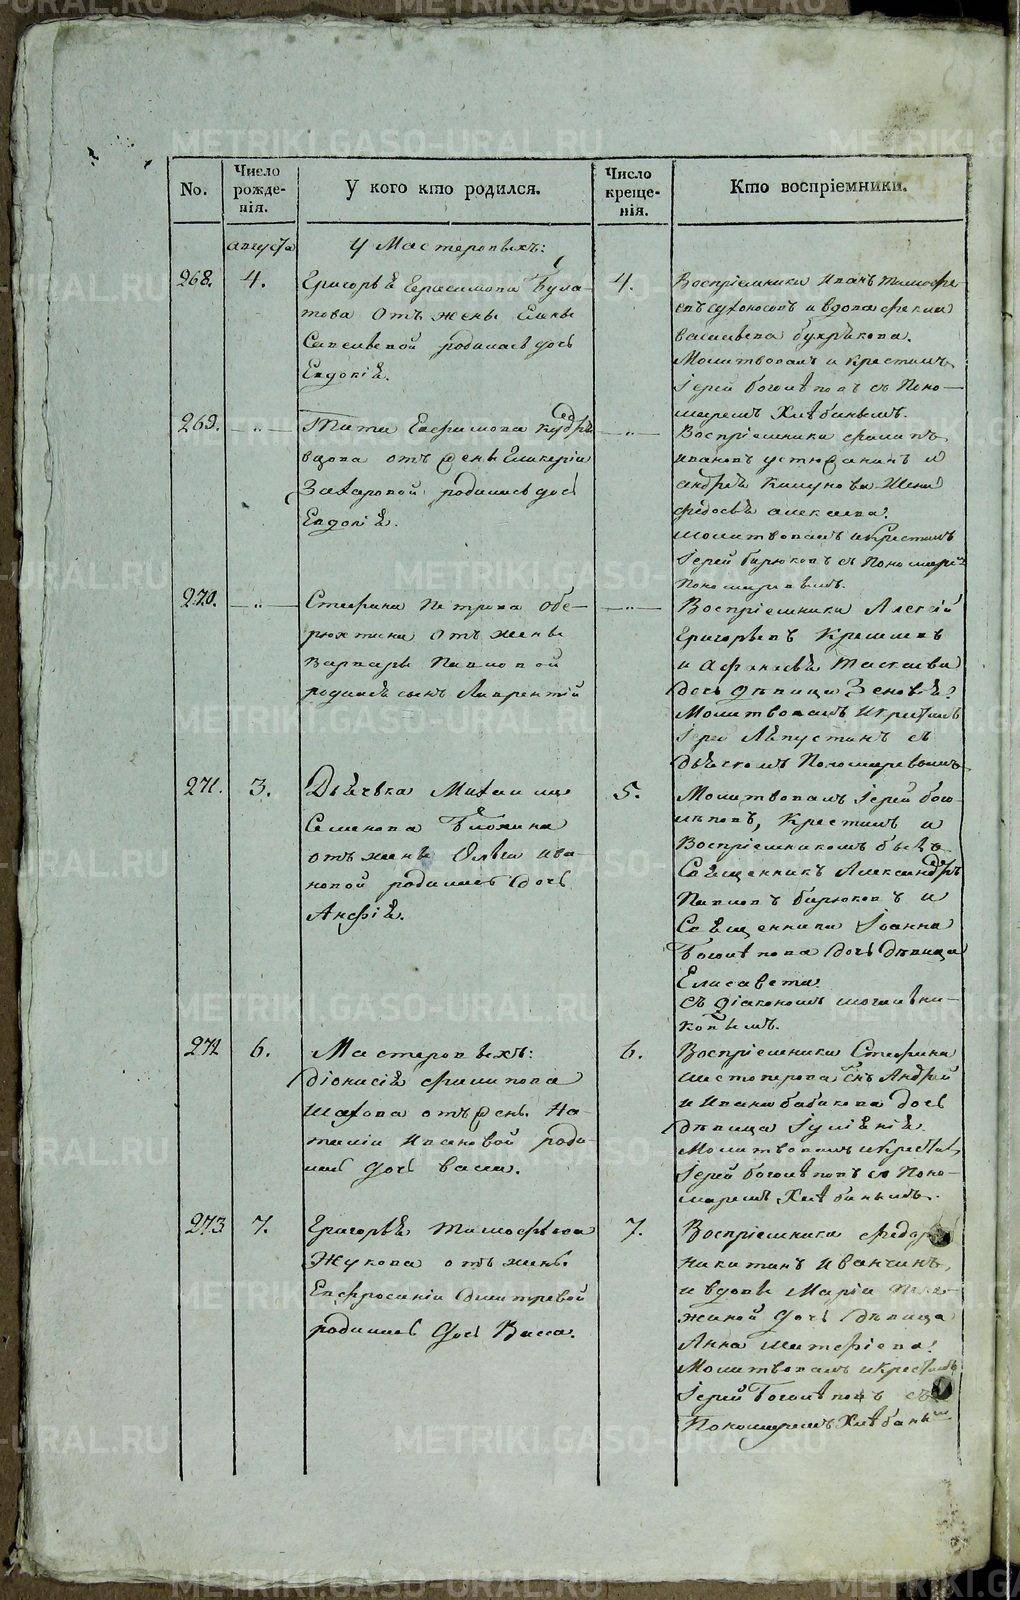 No.
Число рожде-нія.
У кого кто родился.
Число креще-нія.
Кто воспріемники.
августа
У Мастеровыхъ:
268.
4.
Григорья Герасимова Була-
това отъ жены Елены
Савельевой родилась дочь
Евдокія.
4.
Воспріемники Иванъ Тимофе-
евъ и вдова
васильева
Молитвовалъ и крестилъ
Іерей Боголѣповъ съ Поно-
маремъ Хлѣбинымъ.
269.
Тита Ефимова Кудря-
вцова отъ жены Гликеріи
Захаровой родилась дочь
Евдокія.
Воспріемники Филипъ
ивановъ устюжанинъ и
андрея жена
федосья алексѣева.
молитвовалъ и крестилъ
Іерей бирюковъ съ Пономаремъ
Пономаревымъ.
270.
Стефана Петрова Обе-
рюхтина отъ жены
Варвары Павловой
родился сынъ Лаврентій
Воспріемники Алексѣй
Григорьевъ
и Афанасья Таскаева
дочь дѣвица Зеновія.
Молитвовалъ и крестилъ
Іерей съ
дьячкомъ Пономаревымъ
271.
3.
Дьячька Михаила
Семенова
отъ жены Ольги Ива-
новой родилась дочь
Анфія.
5.
Молитвовалъ Іерей бого-
лѣповъ, крестилъ и
Воспріемникомъ былъ
Священникъ Александръ
Павловъ бирюковъ и
Священника Іоанна
Боголѣпова дочь дѣвица
Елисавета
съ діакономъ
272
6.
Мастеровыхъ:
Діонисія филипова
Шахова отъ жены На-
таліи Ивановой роди-
лась дочь васса.
6.
Воспріемники Стефана
шестоперова сынъ Андрей
и Ивана бабикова дочь
дѣвица Іуліанія.
Молитвовалъ и крестилъ
Іерей боголѣповъ съ Поно-
маремъ Хлѣбинымъ.
273
7.
Григорья Тимофѣева
Жукова отъ жены
Евфросиніи Дмитревой
родилась дочь Васса.
7.
Воспріемники федоръ
никитинъ
и вдовы Маріи
дочь дѣвица
Анна
Молитвовалъ и крестилъ
Іерей Боголѣповъ съ
Пономаремъ Хлѣбинымъ
METRIKI.GASO-URAL.RU